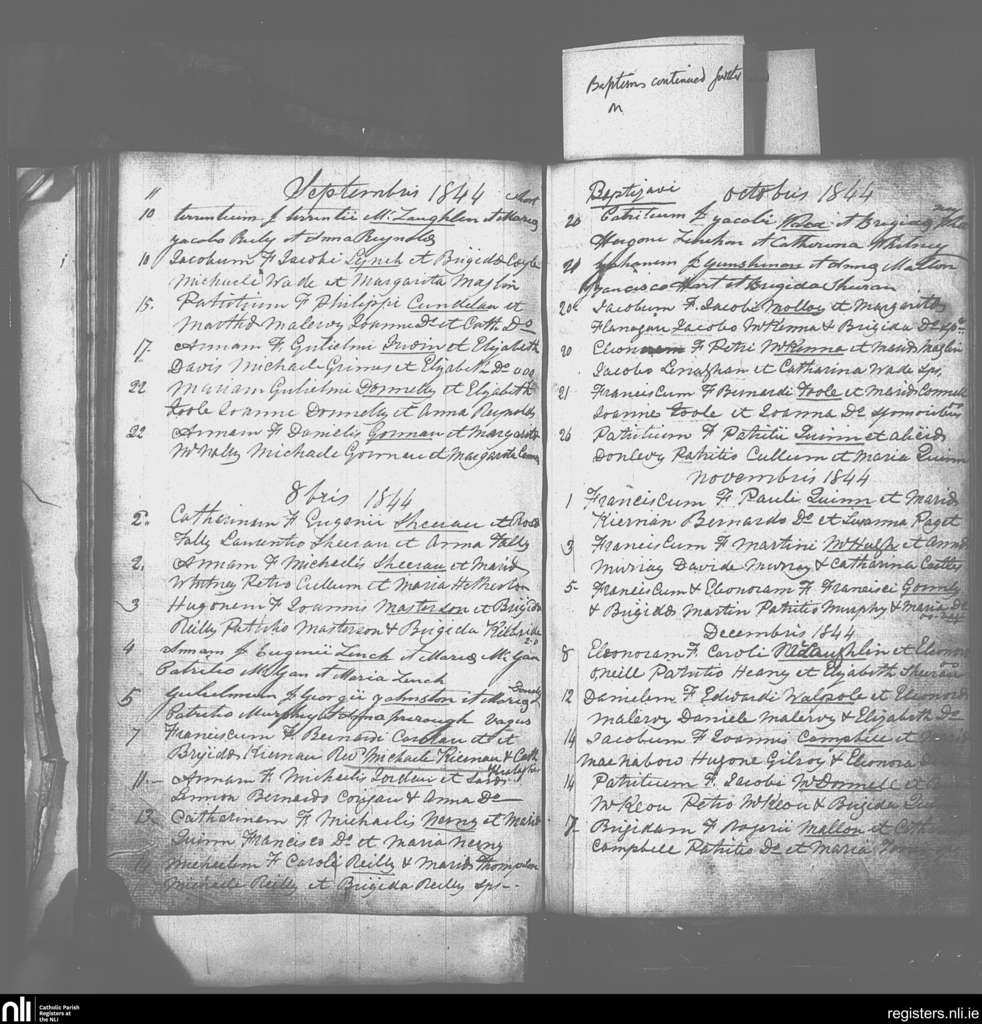 Baptisms continued further
on
11 Septembris 1844
10 terentium f terentii McLaughlin et Maria
yacobo Ruly et Anna Reynolds
10 Jacobum F Jacobi Lynch et Brigida Coyle
Michaele Wade et Margarita Maglin
15. Patritium F Philippi Cundelan et
Martha Maleroy Joanne Do et Cath Do
17. Annam F. Gulielmi Irwin et Elizabeth
Davis Michaele Grimes et Elizabeth Do
22 Mariam Gulielmi Donnelly et Elizabeth
Toole Joanne Donnelly et Anna Reynolds
22 Annam F Danielis Gorman et Margarita
McNally Michaele Gorman et Margarita
8bris 1844
2. Catherinam F Eugenii Sheeran et Rosa
Fally Laurentio Sheeran et Anna Fally
2. Annam F Michaelis Sheeran et Maria
Whitney Petro Cullum et Maria Hetherton
3 Hugonem F Joannis Masterson et Brigida
Reilly Patritio Masterson & Brigida Kilbride
4 Annam f Eugenii Linch et Maria McGan
Patritio Milgan et Maria Linch
5 Gulielmum f Georgii yohnston et Maria
Patritio Murphy et Anna vagus
7 Franciscum F Bernardi Carolan et
Brigida Kiernan Revd Michaele Kiernan & Cath
11. Annam F Michaelis Jorden et Sara
Lennon Bernardo Corigan & Anna Do
13 Catherinam F Michaelis Nerny et Maria
Quinn Francisco Do et Maria Nerny
14 Michaelem F Caroli Reilly & Maria Thompson
Michaele Reilly et Brigida Reilly Sps
Baptizavi octobris 1844
20 Patritium f yacobi et Brigida
Hugone Linehan et Catherina Whitney
20 yohanem f et Anna Mallon
Francisco Hart et Brigida Sheeran
20 Jacobum F. Jacobi Molloy et Margarita
Flanagan Jacobo McKenna & Brigida Do
20 F Petri McKenna et Maria Maglin
Jacobo Lenaghan et Catharina Wade Sps.
21 Franciscum F Bernardi Toole et Maria
Joanne Toole et Joanna Do sponsoribus
26 Patritium F Patritii Quinn et
Donlevy Patritio Cullum et Maria Quinn
Novembris 1844
1 Franciscum F. Pauli Quinn et Maria
Kiernan Bernardo Do et Susanna Paget
3 Franciscum F Martini McHugh et Anna
Murray Davide Murray & Catharina
5- Franciscum & Eleonoram F Francisci Gormly
& Brigida Martin Patritio Murphy & Maria Do
Decembris 1844
8 Eleonoram F. Caroli McLaughlin et Eleonora
oneill Patritio Heany et Elizabeth Sheeran
12 Danielem F Edwardi Walpole et Eleonora
Maleroy Daniele Maleroy & Elizabeth Do
14 Jacobum F Joannis Campbell et
MacNabow Hugone Gilroy & Eleonora
14 Patritium F. Jacobi McDonnell et
McKeou Petro McKeou & Brigida
17- Brigidam F Rogerii Mallon et
Campbell Patritio Do et Maria
nli Catholic Parish
Registers at
the NLI
registers.nli.ie